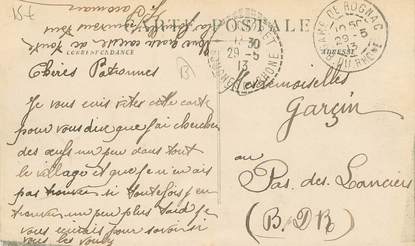 157
CARTE POSTALE
CORRESPONDANCE
ADRESSE
30
29-5
13
RHONE
B
Chères Patronnes
Je vous écris vite cette carte
pour vous dire que j'ai chercher
des œufs un peu dans tout
le village et que je n'avais
pas trouver si toutefois j'en
trouver un peu plus tard je
vous écrirais pour savoir si
vous les voulez
Mesdemoiselles
Garçin
au
Pas. des. Lanciers
(B. D R)